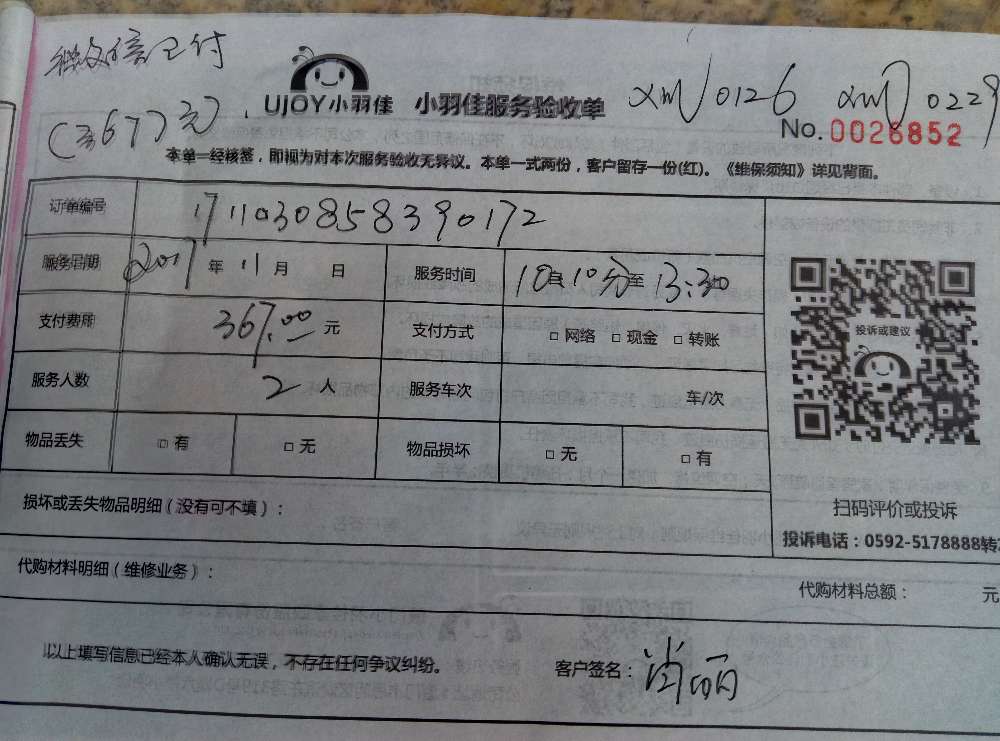 微信已付
(367)元.
UJOY小羽佳 小羽佳服务验收单 XM 0126 XM 0229
No. 0026852
本单一经核签，即视为对本次服务验收无异议。本单一式两份，客户留存一份(红)。《维保须知》详见背面。
订单编号 1711030858390172
服务日期 2017 年 11 月 日 服务时间 10点10分至13:30
支付费用 367.00 元 支付方式 □ 网络 □ 现金 □ 转账
投诉或建议
服务人数 2 人 服务车次 车/次
物品丢失 □ 有 □ 无 物品损坏 □ 无 □ 有
损坏或丢失物品明细（没有可不填）：
扫码评价或投诉
投诉电话：0592-5178888转
代购材料明细（维修业务）： 代购材料总额： 元
以上填写信息已经本人确认无误，不存在任何争议纠纷。 客户签名：肖丽